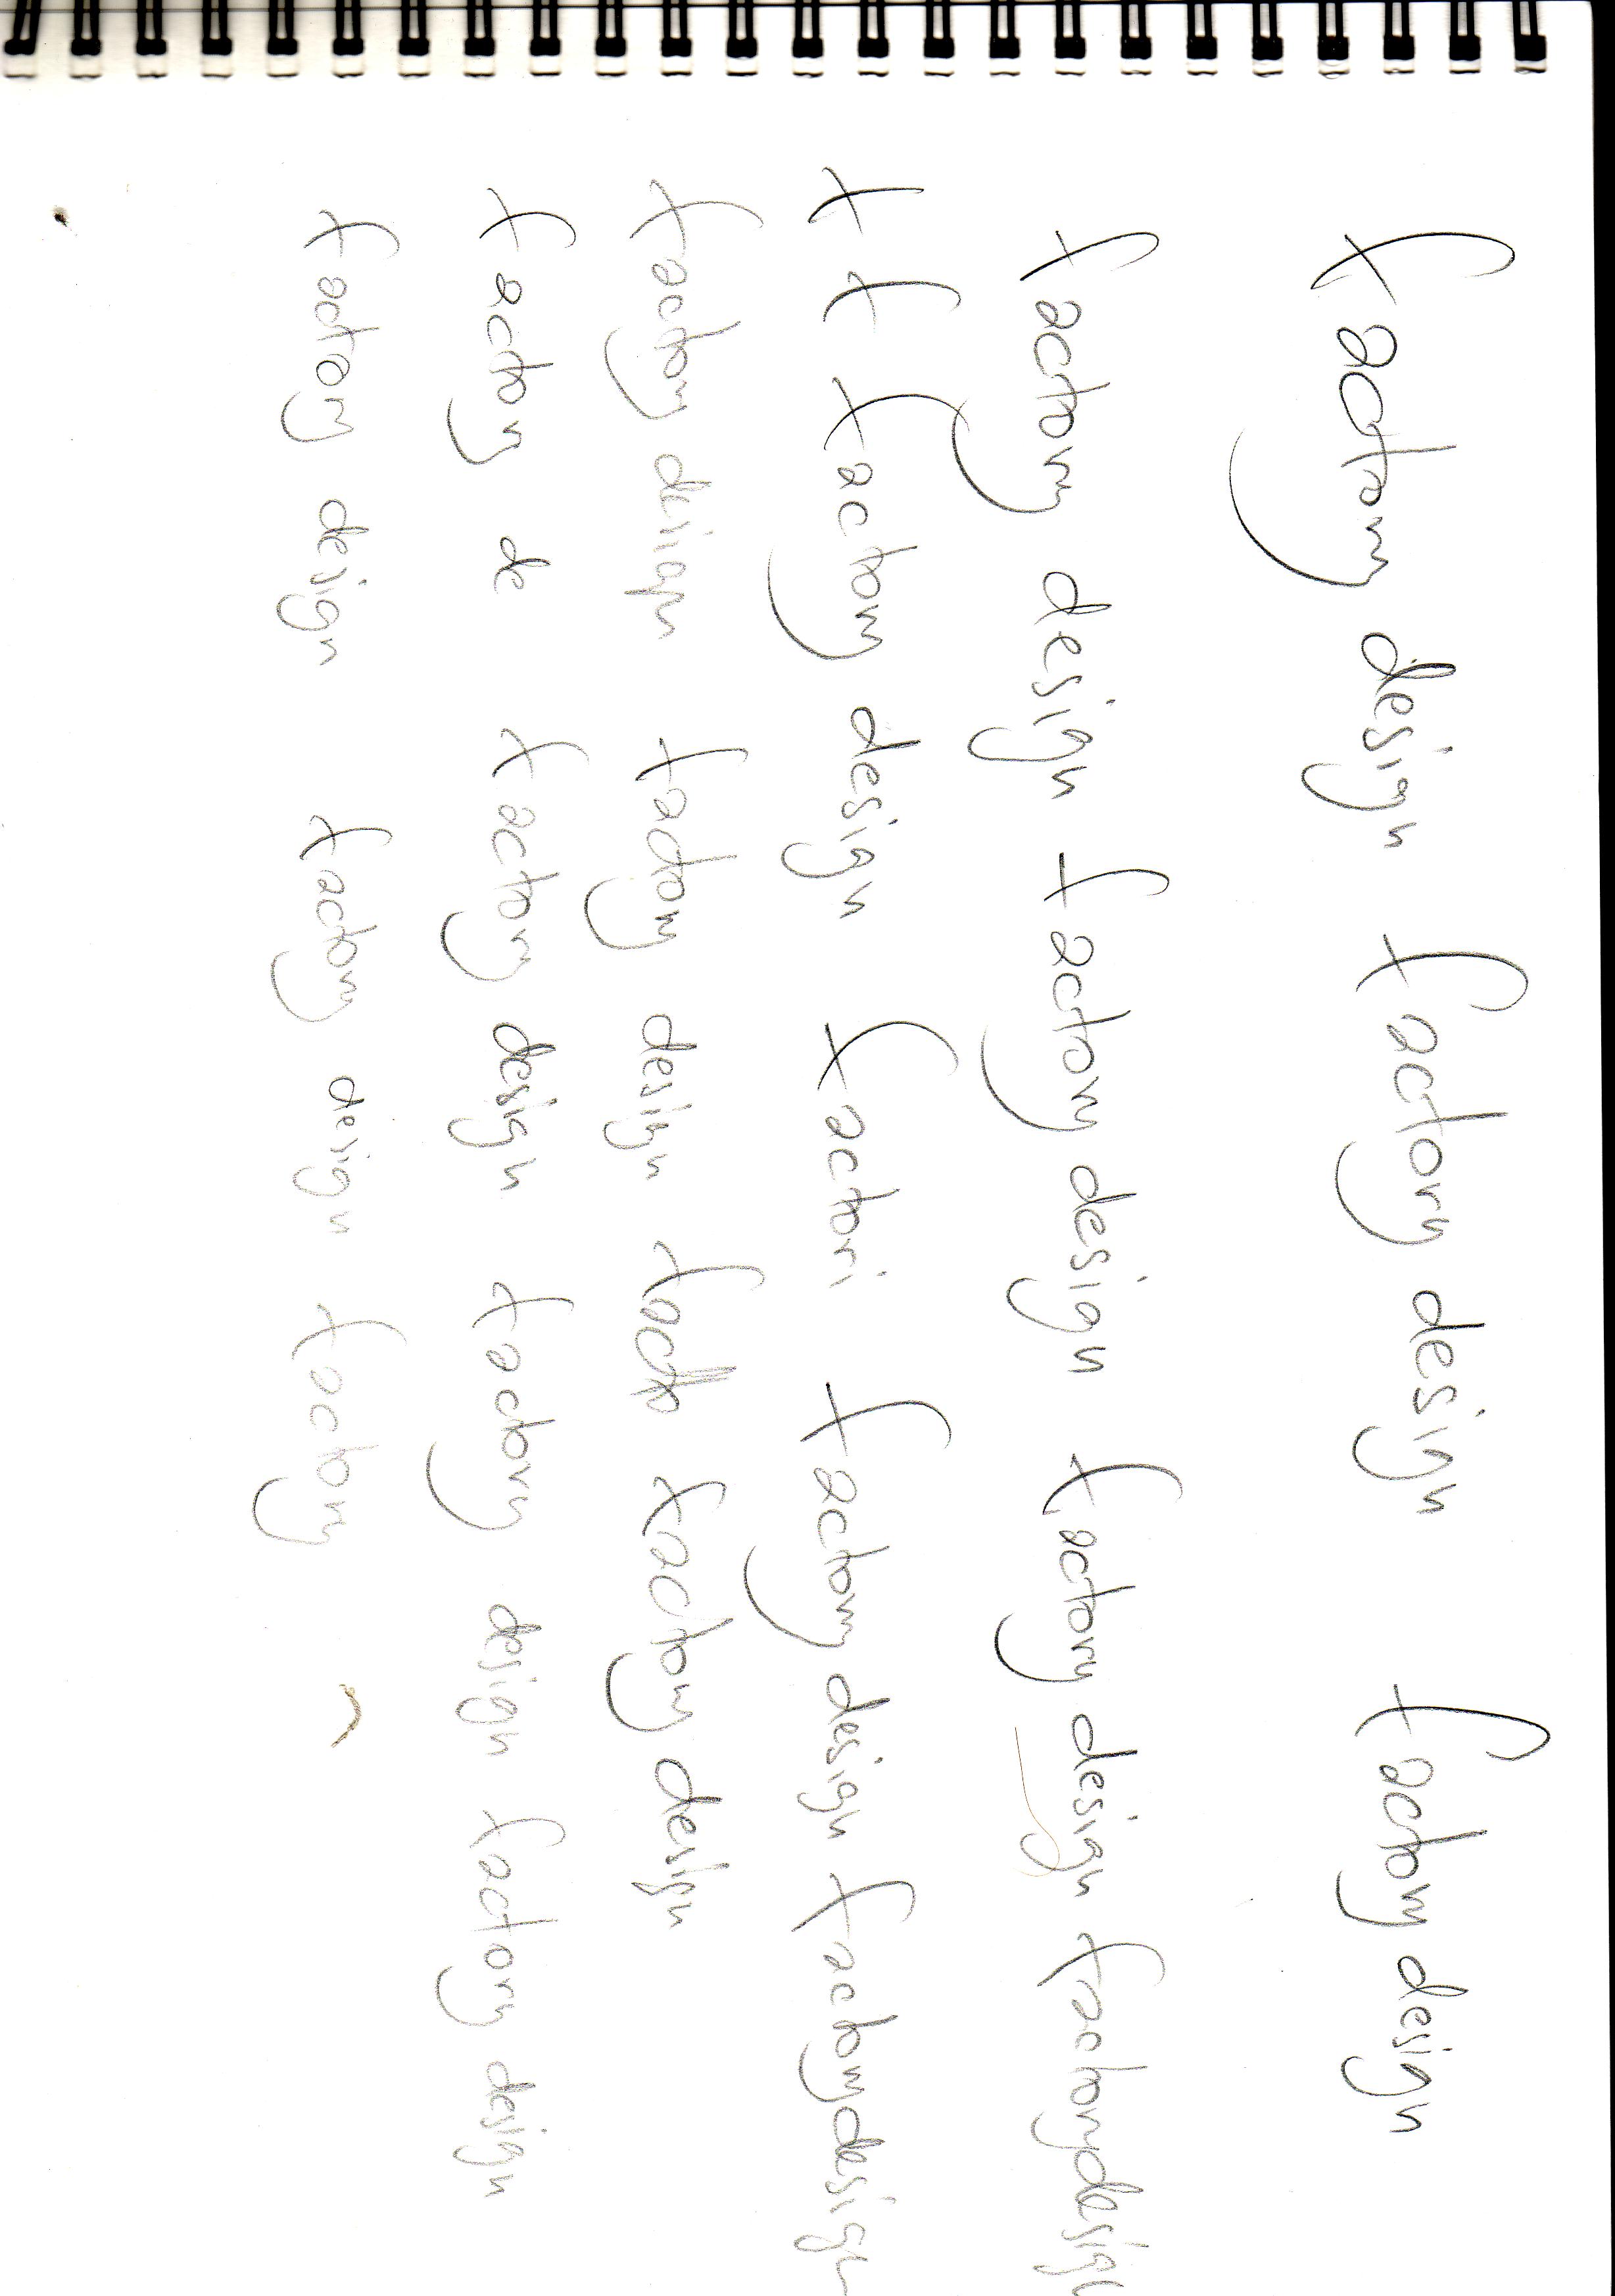 factory design factory design factory design
factory design factory design factory design factorydesign
f f factory design factori factory design factorydesign
factory design factory design facto factory design
factory de factory design factory design factory design
factory design factory design factory